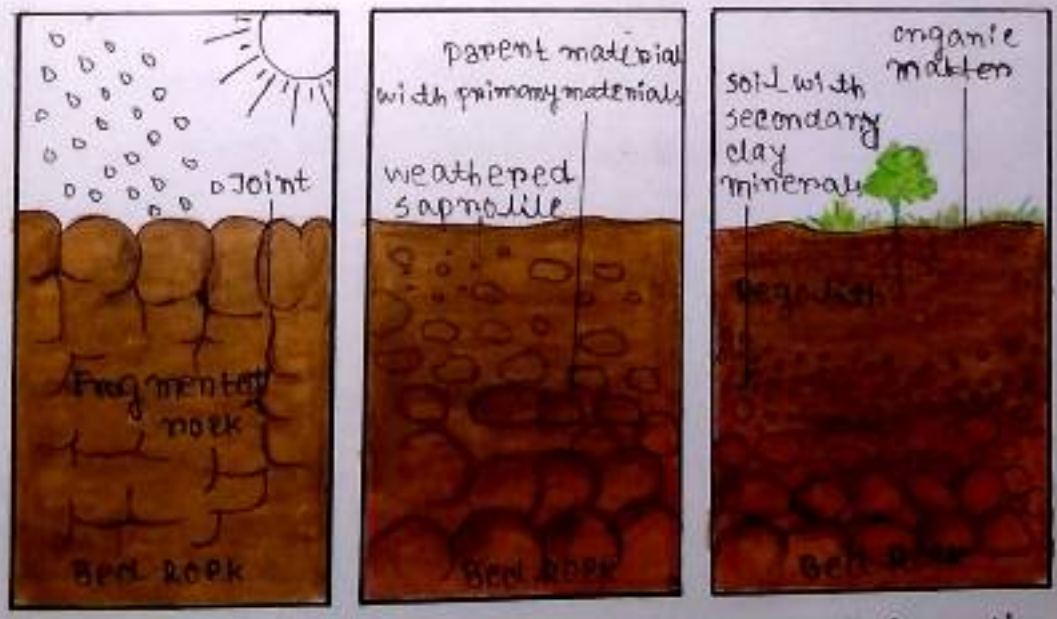 Joint
Fragmented
rock
Bed Rock
parent material
with primary materials
weathered
saprolile
Bed Rock
organic
matter
soil with
secondary
clay
minerals
Regolith
Bed Rock